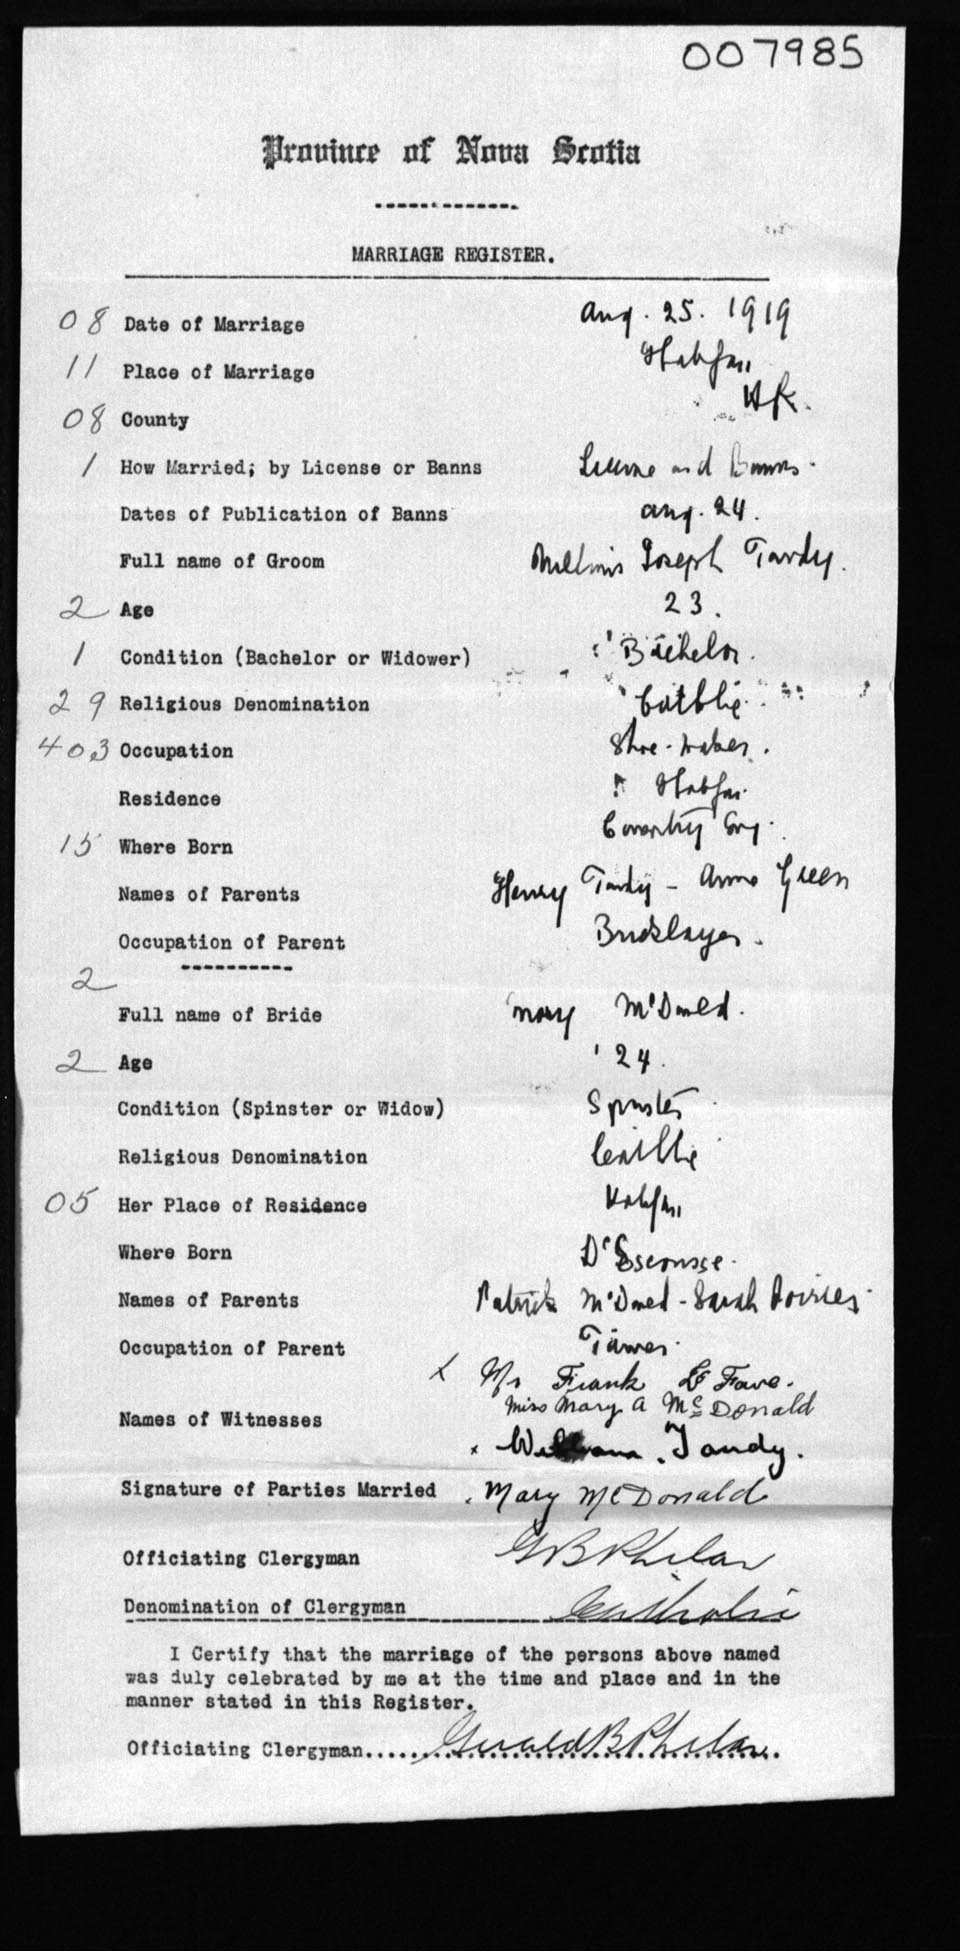 007985
Province of Nova Scotia
MARRIAGE REGISTER.
08 Date of Marriage Aug. 25. 1919
11 Place of Marriage Halifax
08 County Hfx.
1 How Married; by License or Banns License and Banns.
Dates of Publication of Banns Aug. 24.
Full name of Groom William Joseph Tandy.
2 Age 23.
1 Condition (Bachelor or Widower) Bachelor.
29 Religious Denomination Catholic.
403 Occupation Shoe-maker.
Residence Halifax
15 Where Born Coventry Eng.
Names of Parents Henry Tandy - Anne Green
Occupation of Parent Bricklayer.
2
Full name of Bride Mary McDonald.
2 Age 24.
Condition (Spinster or Widow) Spinster
Religious Denomination Catholic
05 Her Place of Residence Halifax
Where Born D'Escousse.
Names of Parents Patrick McDonald - Sarah
Occupation of Parent
x Mr Frank Le Fave.
Names of Witnesses Miss Mary A McDonald
x William Tandy.
Signature of Parties Married Mary McDonald
Officiating Clergyman G B Phelan
Denomination of Clergyman Catholic
I Certify that the marriage of the persons above named
was duly celebrated by me at the time and place and in the
manner stated in this Register.
Officiating Clergyman.....Gerald B Phelan